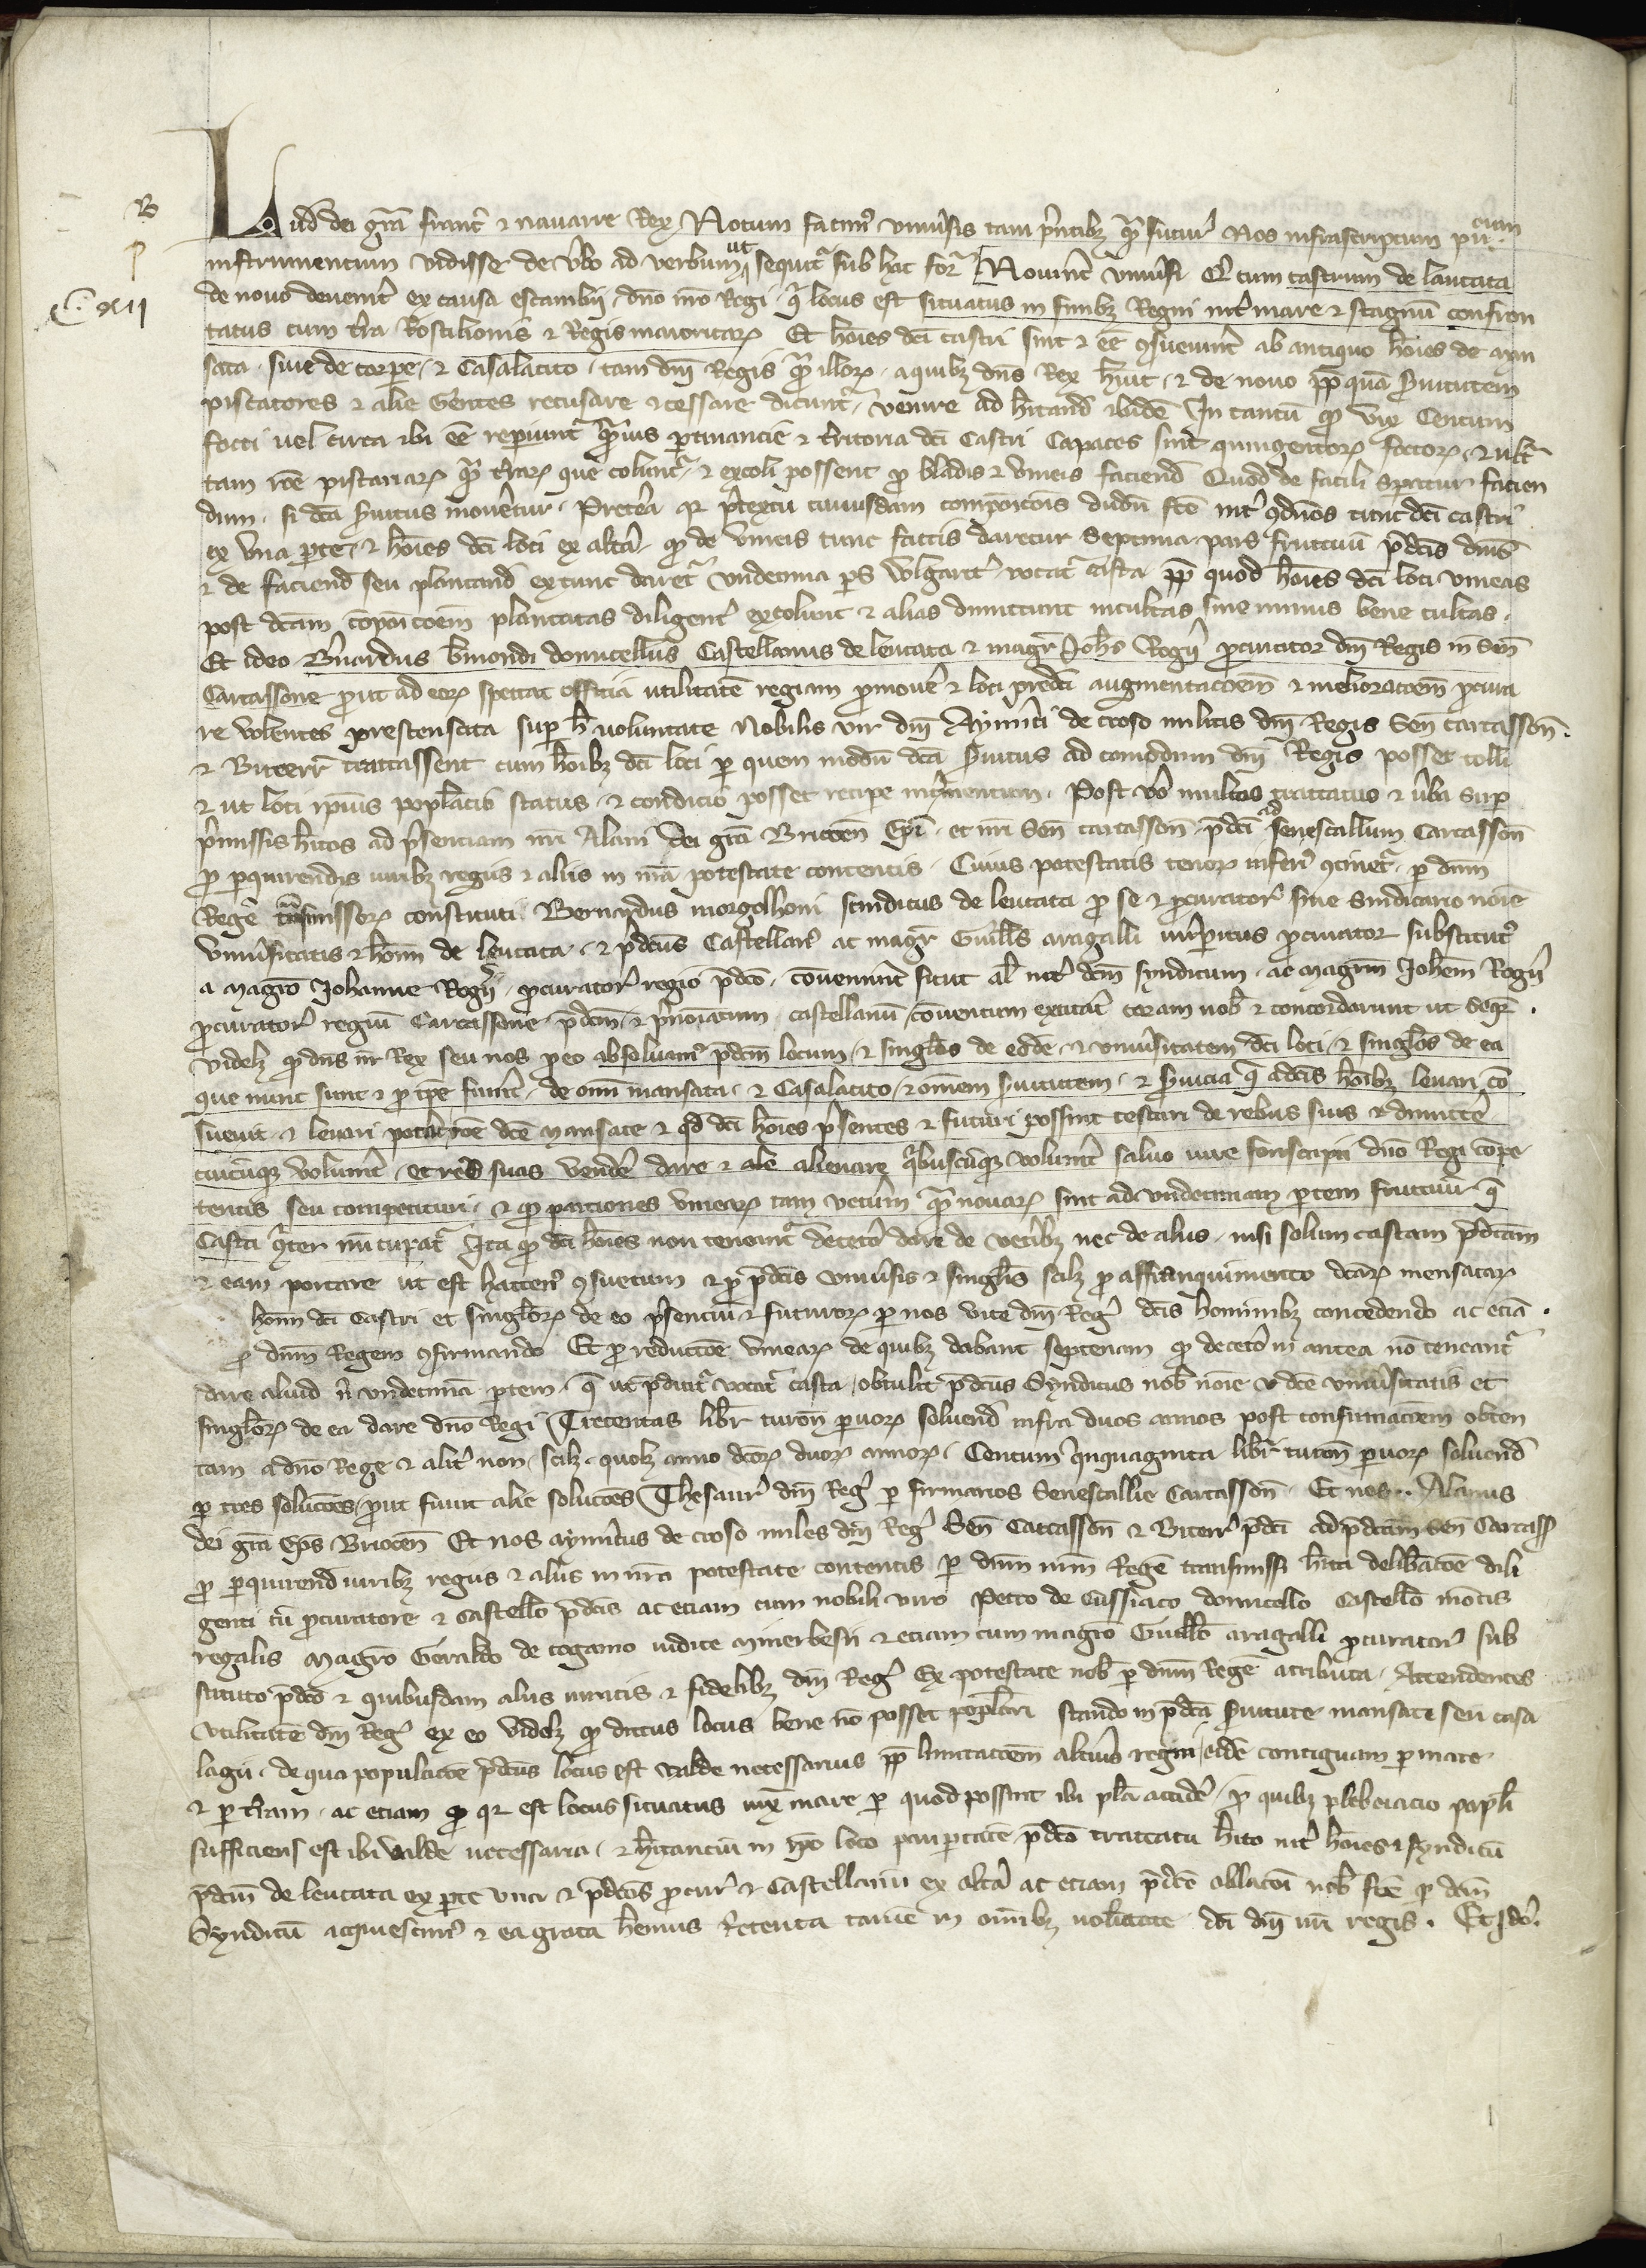 B
p
C xii
Lud dei gra franc et navarre Rex Notum facim9 univsis tam pntibz qa futur Nos infrascriptum pu cum
instrumentum vidisse de vbo ad verbum ut sequitr sub hac for Novint univsi Q cum castrum de laucata
de novo devenit ex causa escambii dno nro Regi q locus est situatus in finibz Regni int mare et stagnu confron
tatus cum tra Rossilionis et Regis maioricarz Et hoies dci castri sint et ee 9sueverint ab antiquo hoies de ayn
sata sive de corpe et Casalatico tam dni Regis qa illorz a quibz dns Rex huit et de novo pp qua svitutem
piscatores et alie Gentes recusare et cessare dicunt venire ad hitand ibide In tantu qo vix Centum
foci vel circa ibi ee repiunt pertinancie et tritoria dci Castri Capaces sint quingentorz focorz et ult
tam roe piscariarz qa trarz que coluntr et excoli possent pro bladis et vineis faciend Quod de facili speratur facien
dum si dca svitus movetur Pretea qr ptextu cuiusdam composicois dudu fce int 9dnos tunc dci castri
ex una pte et hoies dci loci ex alta qo de vineis tunc factis daretur Septima pars fructuu pdcis dnis
et de faciend seu plantand extunc daretr undecima ps vulgarit vocat casta pp quod hoies dci loci vineas
post dcam coposicoem plantatas diligent excolunt et alias dimittunt incultas sive minus bene cultas
Et ideo Bnardus bmondi domicellus Castellanus de leucata et magr Johs Rogii pcurator dni Regis in Sen
Carcassone put ad eorz spectat officia utilitate regiam pmove et loci predci augmentacoem et melioracoem pcura
re volentes prescenscita sup h voluntate Nobilis vir dni Aymici de croso militis dni Regis Sen carcasson
et Biterr tractassent cum hoibz dci loci per quem modu dca svitus ad comodum dni Regis posset tolli
et ut loci ipius poplacio status et condicio posset recipe incmentum Post vo multos tractatus et vba sup
pmissis hitos ad psentiam nri Alani dei gra Briocen Epi et nri Sen carcasson pdci ad senescalliam Carcasson
pro pquirendis iuribz regiis et aliis in nra potestate contentis Cuius potestatis tenor inferi 9tinet per dnm
Rege transmissorz constituti Bernardus morgolhoni sindicus de leucata pro se et pcurator sive Sindicario noie
univsitatis et hoim de leucata et pdcus Castellan ac magr Guills aragalli iurpitus pcurator substitut9
a magro Johanne Rogii pcurator regio pdco convenint sicut al int dcm syndicum ac magrm Johem Rogii
pcurator regiu Carcassone pdcm et pnoiatum castellanu conventum extitit coram nob et concordarunt ut Seqr
videlz qo dns nr Rex seu nos pro eo absolvam9 pdcm locum et singlos de eode et univsitatem dci loci et singlos de ea
que nunc sunt et pro tpe fuint de omi mansata et Casalatico et omem svitutem et svicia q a dcis hoibz levari con
suevit et levari potat roe dce mansate et qd dci hoies psentes et futuri possint testari de rebus suis et dimitte
cuicuqz voluint et res suas vende dare et ale alienare qibuscuqz voluint salvo iure foriscapii dno Regi cope
tentis seu competituri et qo porciones vinearz tam vetum qa novarz sint ad undecimam ptem fructuu q
Casta qter nucupatr Ita qo dci hoies non teneantr deceto dare de vetibz nec de aliis nisi solum castam pdctam
et eam portare ut est hacten9 9suetum et pro pdcis univsis et singlis scilz pro affranquimento dcarz mensatarz
hoim dci Castri et singlorz de eo psentiu et futurorz per nos vice dni Reg dcis hominibz concedendo ac etia
per dnm Regem 9firmando Et pro reductoe vinearz de quibz dabant septenam qo deceto in antea no teneantr
dare aliud n undecima ptem q ut pdicitr vocatr casta obtulit pdcus Syndicus nob noie dce univsitatis et
singlorz de ea dare dno Regi Trecentas libr turon pvorz solvend infra duos annos post confirmacoem obten
tam a dno Rege et alit non scilz quolz anno dcorz duorz annorz Centum qnquaginta libr turon pvorz solvend
per tres solucoes put fiunt alie solucoes Thesaur dni Reg per firmarios Senescallie Carcasson Et nos Alanus
dei gra Eps Briocen Et nos aymicus de croso miles dni Reg Sen Carcasson et Biterr pdci ad pdcam Sen Carcass
pro pquirend iuribz regiis et aliis in nra potestate contentis per dnm nrm Rege transmissi hita delibacoe dili
genti cu pcuratore et Castello pdcis ac etiam cum nobili viro Petro de Cussiaco domicello Castello montis
regalis magro Geraldo de cogamo iudice minerbesii et etiam cum magro Guillo aragalli pcurator sub
stituto pdco et quibusdam aliis iuratis et fidelibz dni Reg Ex potestate nob per dnm Rege atributa Attendentes
utilitate dni Reg ex eo videlz qo dictus locus bene no posset poplari stando in pdca svitute mansate seu casa
lagii de qua populacoe pdcus locus est valde necessarius pp limitacoem altius regni eide contiguam per mare
et per tram ac etiam qo qr est locus situatus iux mare per quod possint ibi pla accide pro quibz plebeiacio popli
sufficiens est ibi valde necessaria et hitanciu in ipo loco paupertate pdco tractatu hito int hoies et syndicu
pdcm de leucata ex pte una et pdcos pcur et Castellanu ex alta ac etiam pdce oblacoi nob fce per dcm
Syndicu acquiescim9 et ea grata hemus Retenta tame in omibz volutate dci dni nri regis Et ideo